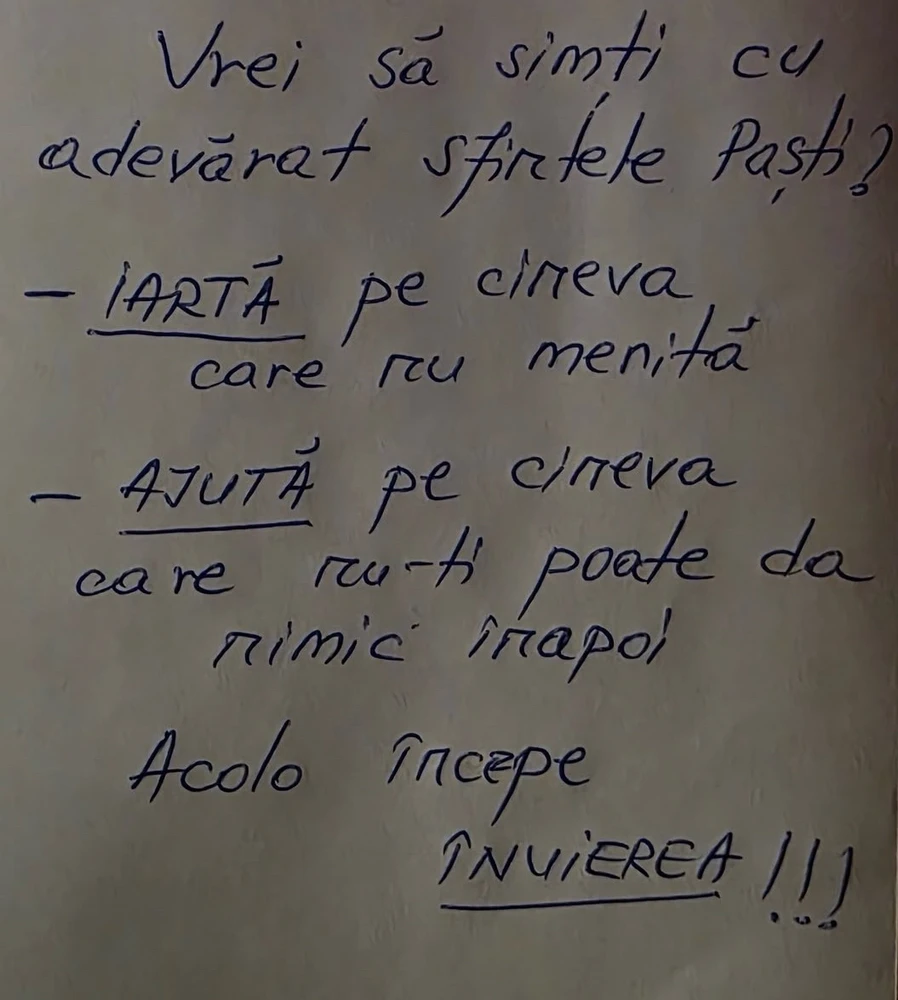 Vrei să simți cu
adevărat sfintele Paști?
- IARTĂ pe cineva
care nu menită
- AJUTĂ pe cineva
care nu-ti poate da
nimic înapoi
Acolo începe
ÎNVIEREA !!!